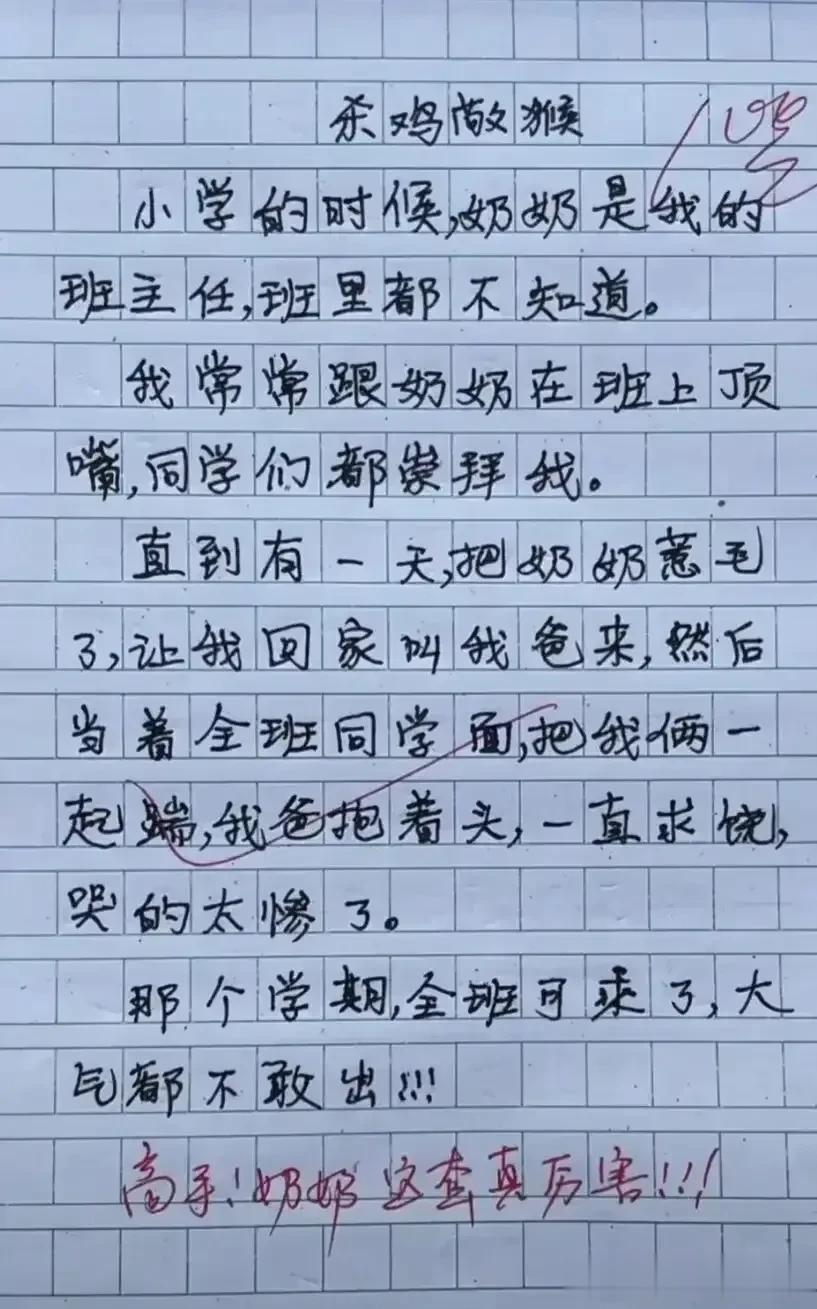 杀鸡敬猴
小学的时候,奶奶是我的
班主任,班里都不知道。
我常常跟奶奶在班上顶
嘴,同学们都崇拜我。
直到有一天,把奶奶惹毛
了,让我回家叫我爸来,然后
当着全班同学面,把我俩一
起踹,我爸抱着头,一直求饶,
哭的太惨了。
那个学期,全班可乖了,大
气都不敢出!!!
高手!奶奶这套真厉害!!!